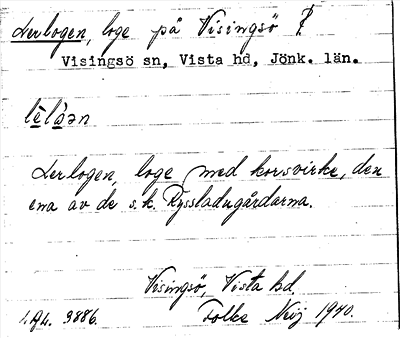 Lerlogen, loge på Visingsö
Visingsö sn, Vista hd, Jönk. län.
Lerlogen, loge med korsvirke, den
ena av de s.k. Ryssladugårdarna.
Visingsö, Vista hd.
9886. Folke 1940.